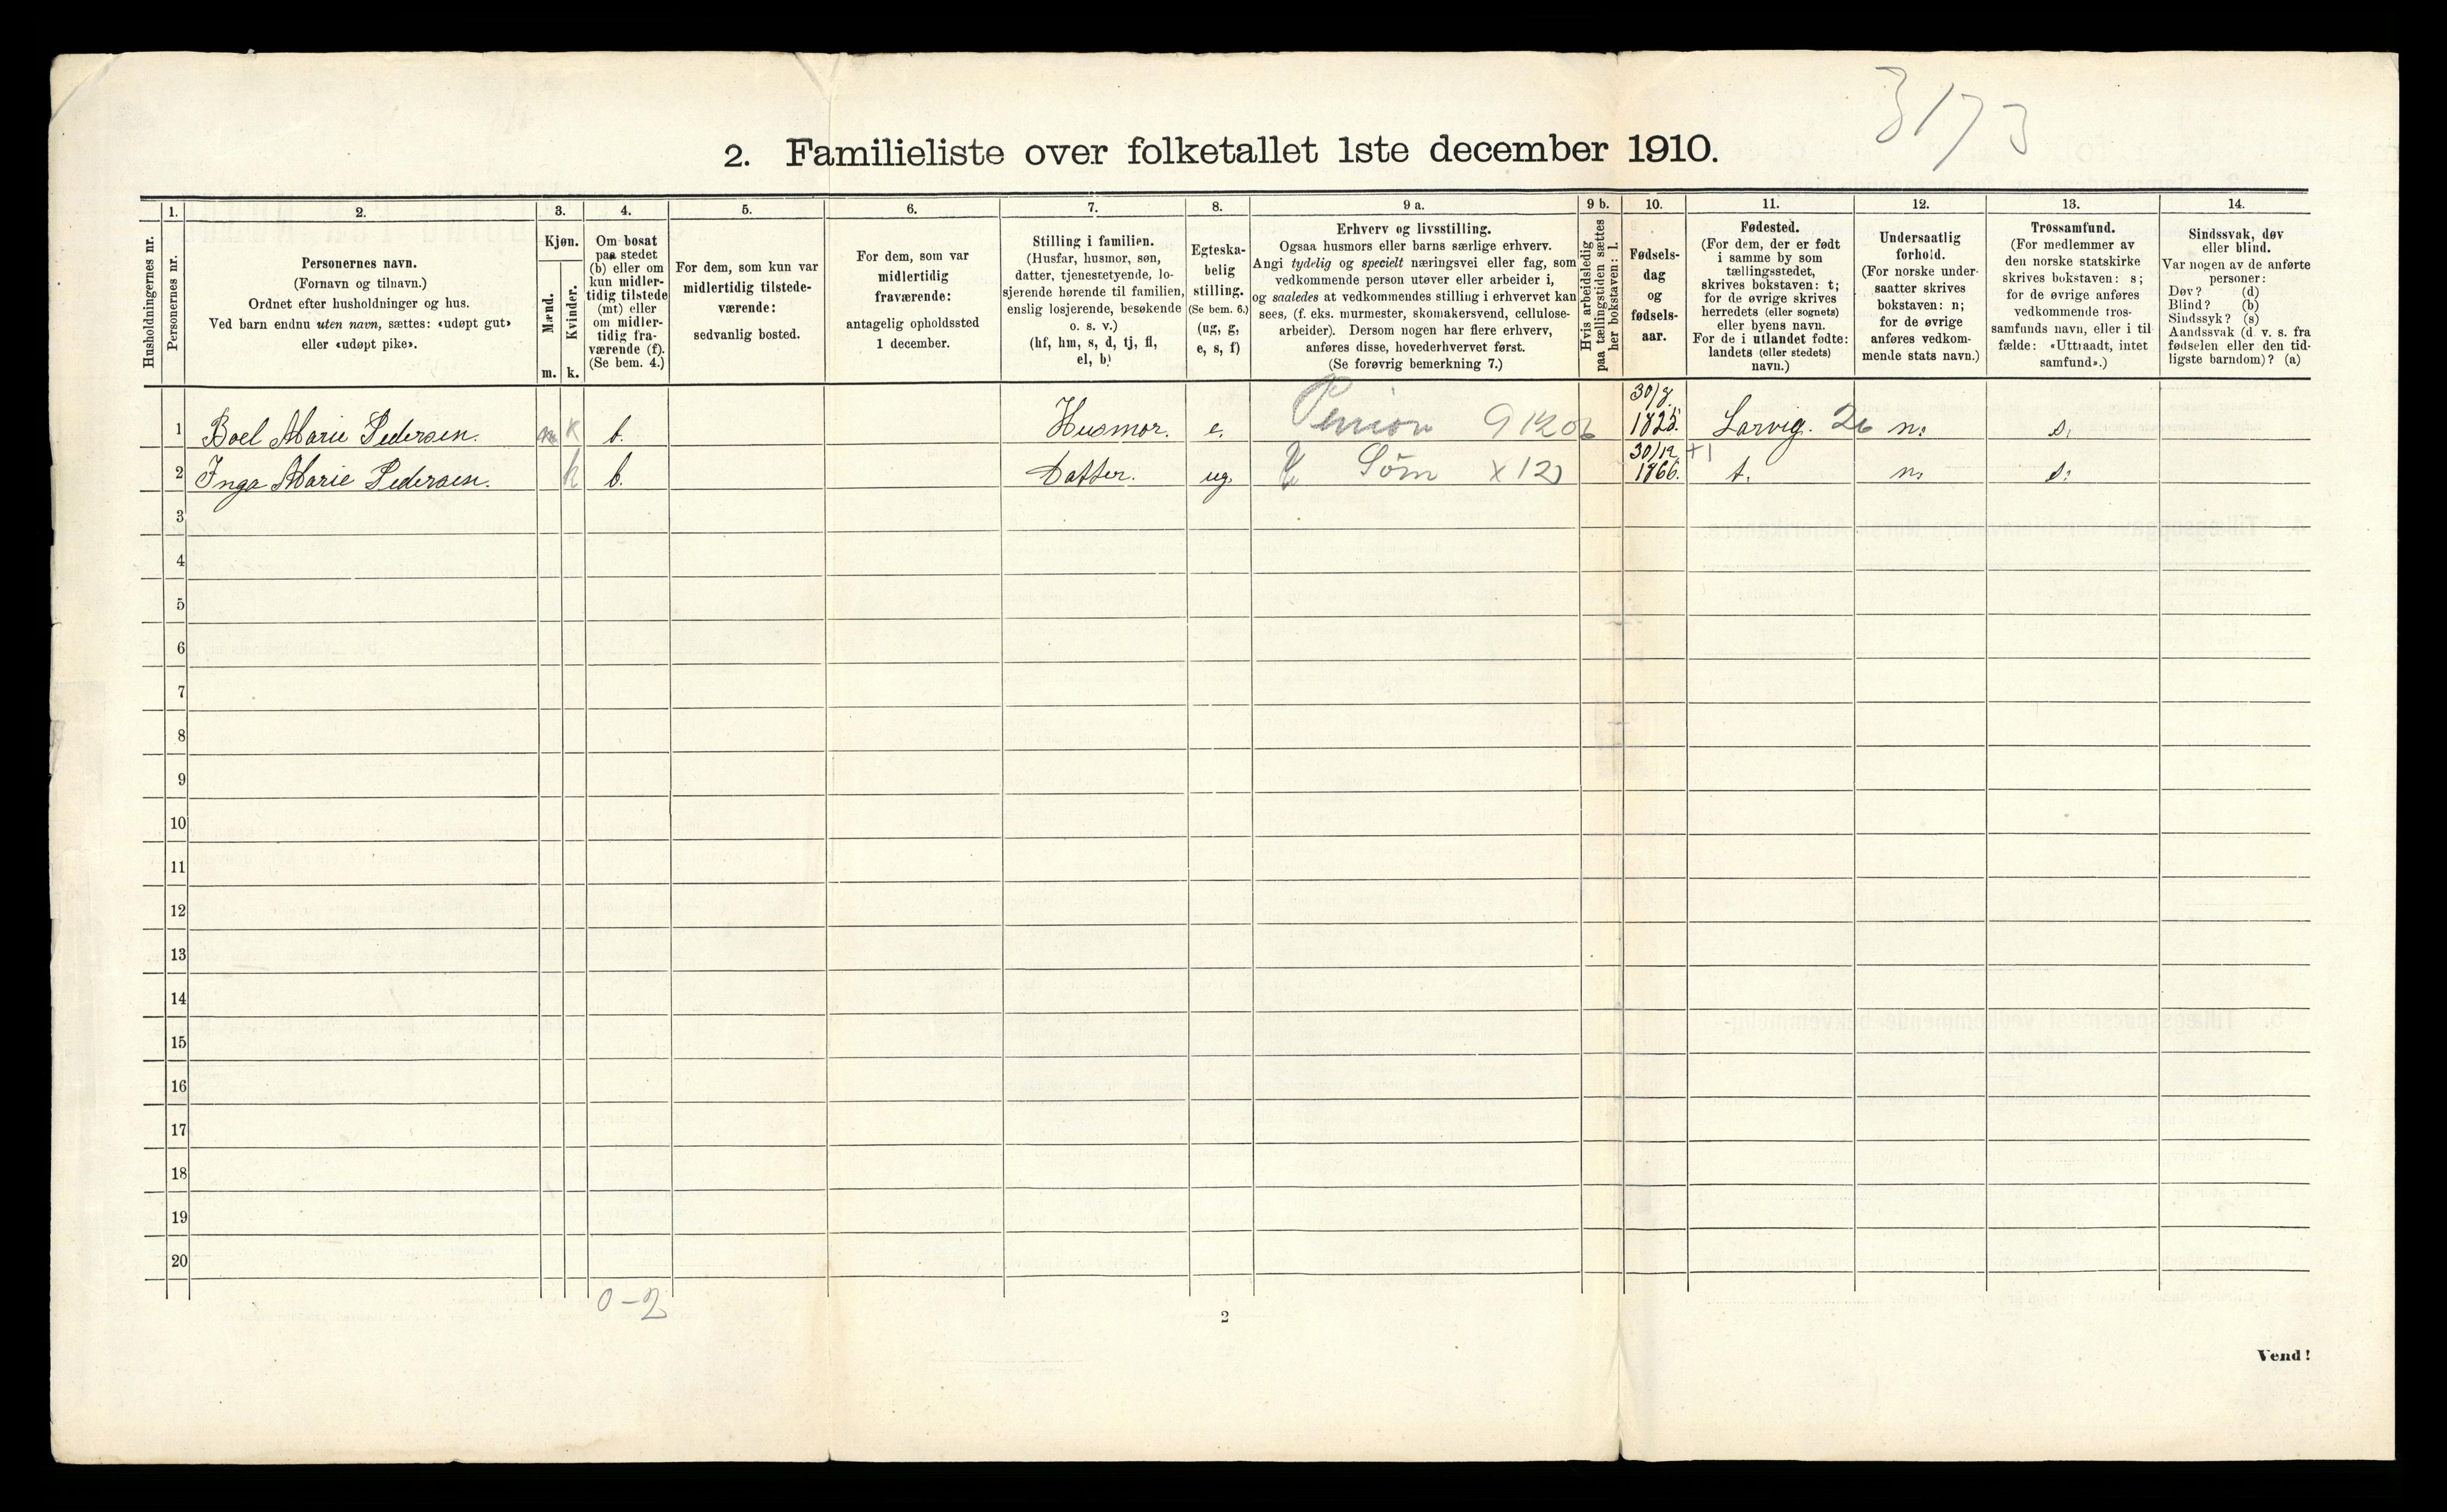 3173
2. Familieliste over folketallet 1ste december 1910.
Husholdningernes nr.
1.
Personernes nr.
2.
Personernes navn.
(Fornavn og tilnavn.)
Ordnet efter husholdninger og hus.
Ved barn endnu uten navn, sættes: «udøpt gut»
eller «udøpt pike».
3.
Kjøn.
Mænd.
m.
Kvinder.
k.
4.
Om bosat
paa stedet
(b) eller om
kun midler-
tidig tilstede
(mt) eller
om midler-
tidig fra-
værende (f).
(Se bem. 4.)
5.
For dem, som kun var
midlertidig tilstede-
værende:
sedvanlig bosted.
6.
For dem, som var
midlertidig
fraværende:
antagelig opholdssted
1 december.
7.
Stilling i familien.
(Husfar, husmor, søn,
datter, tjenestetyende, lo-
sjerende hørende til familien,
enslig losjerende, besøkende
o. s. v.)
(hf, hm, s, d, tj, fl,
el, b)
8.
Egteska-
belig
stilling.
(Se bem. 6.)
(ug, g,
e, s, f)
9 a.
Erhverv og livsstilling.
Ogsaa husmors eller barns særlige erhverv.
Angi tydelig og specielt næringsvei eller fag, som
vedkommende person utøver eller arbeider i,
og saaledes at vedkommendes stilling i erhvervet kan
sees, (f. eks. murmester, skomakersvend, cellulose-
arbeider). Dersom nogen har flere erhverv,
anføres disse, hovederhvervet først.
(Se forøvrig bemerkning 7.)
9 b.
Hvis arbeidsledig
paa tællingstiden sættes
her bokstaven: l.
10.
Fødsels-
dag
og
fødsels-
aar.
11.
Fødested.
(For dem, der er født
i samme by som
tællingsstedet,
skrives bokstaven: t;
for de øvrige skrives
herredets (eller sognets)
eller byens navn.
For de i utlandet fødte:
landets (eller stedets)
navn.)
12.
Undersaatlig
forhold.
(For norske under-
saatter skrives
bokstaven: n;
for de øvrige
anføres vedkom-
mende stats navn.)
13.
Trossamfund.
(For medlemmer av
den norske statskirke
skrives bokstaven: s;
for de øvrige anføres
vedkommende tros-
samfunds navn, eller i til-
fælde: «Uttraadt, intet
samfund».)
14.
Sindssvak, døv
eller blind.
Var nogen av de anførte
personer:
Døv? (d)
Blind? (b)
Sindssyk? (s)
Aandssvak (d. v. s. fra
fødselen eller den tid-
ligste barndom)? (a)
1 Boel Marie Pedersen. m k b. Husmor. e. 1825. Larvig. 26 n. s.
2 Inga Marie Pedersen. k b. Datter. ug. Søm x 12) 30/12 1866. +1 t. n. s.
3
4
5
6
7
8
9
10
11
12
13
14
15
16
17
18
19
20
0-2
2
Vend!